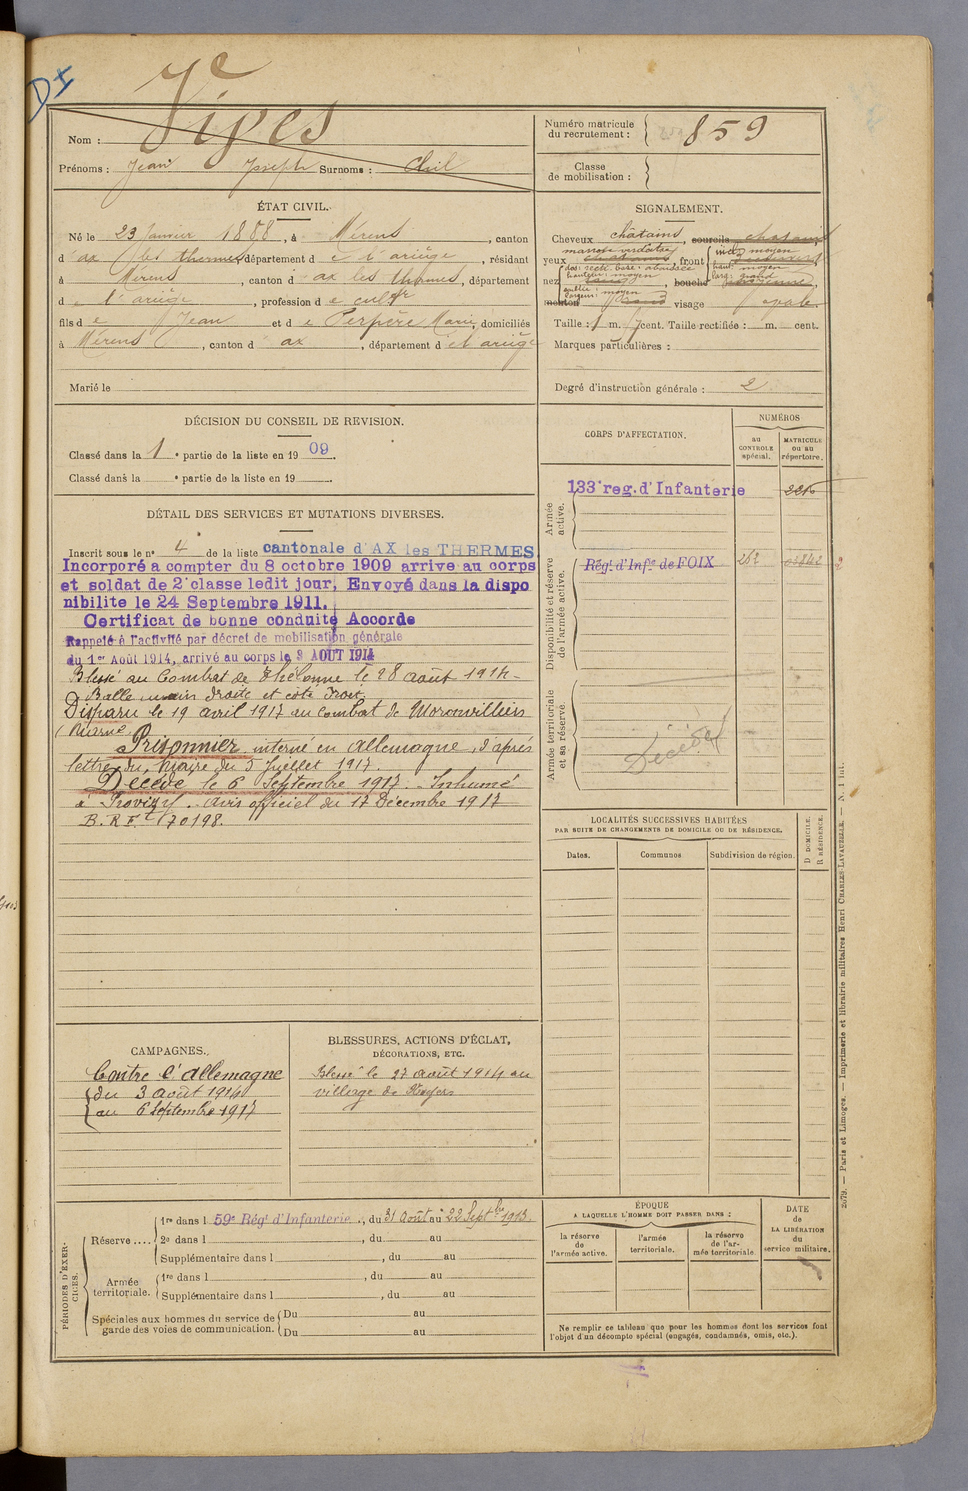 DI
Nom : Vives
Prénoms : Jean Joseph Surnoms :
Numéro matricule du recrutement : 859
Classe de mobilisation :
ÉTAT CIVIL.
Né le 23 Janvier 1888, à Mérens, canton
d'ax les thermes, département de l'ariège, résidant
à Mérens, canton d'ax les thermes, département
de l'ariège, profession de cultr
fils de Jean et de Perpère Marie, domiciliés
à Mérens, canton d'ax, département de l'ariège
Marié le
SIGNALEMENT.
Cheveux châtains, sourcils chatains
yeux marron verdâtre, front incl. moyen
haut. moyen
larg. grand
nez dos: rect. base: abaissée
hauteur: moyen
saillie: moyen
largeur: moyen
bouche moyenne,
menton rond visage ovale.
Taille : 1 m. cent. Taille rectifiée : m. cent.
Marques particulières :
Degré d'instruction générale : 2
DÉCISION DU CONSEIL DE REVISION.
Classé dans la 1e partie de la liste en 1909.
Classé dans la e partie de la liste en 19
CORPS D'AFFECTATION.
NUMÉROS
au CONTROLE spécial.
MATRICULE ou au répertoire.
Armée active.
133e reg. d'Infanterie
Disponibilité et réserve de l'armée active.
Régt d'Infie de FOIX 262
Armée territoriale et sa réserve.
Décédé
DÉTAIL DES SERVICES ET MUTATIONS DIVERSES.
Inscrit sous le n° 4 de la liste cantonale d'AX les THERMES
Incorporé a compter du 8 octobre 1909 arrive au corps
et soldat de 2e classe ledit jour, Envoyé dans la dispo
nibilite le 24 Septembre 1911.
Certificat de bonne conduite Accorde
Rappelé à l'activité par décret de mobilisation générale
du 1er Août 1914, arrivé au corps le 3 AOUT 1914
Blessé au Combat de Thélonne le 28 août 1914 -
Balle main droite et côté droit.
Disparu le 19 avril 1917 au combat de Moronvilliers
(Marne)
Prisonnier interné en Allemagne, d'après
lettre du Maire du 5 Juillet 1917.
Décédé le 6 Septembre 1917. Inhumé
à Provizy. avis officiel du 17 Décembre 1917
B.R.F. 170198.
LOCALITÉS SUCCESSIVES HABITÉES
PAR SUITE DE CHANGEMENTS DE DOMICILE OU DE RÉSIDENCE.
Dates.
Communes
Subdivision de région.
D DOMICILE.
R RÉSIDENCE.
CAMPAGNES.
Contre l'Allemagne
du 3 août 1914
au 6 Septembre 1917
BLESSURES, ACTIONS D'ÉCLAT,
DÉCORATIONS, ETC.
Blessé le 27 août 1914 au
village de
PÉRIODES D'EXERCICES.
Réserve ....
1re dans l 59e Régt d'Infanterie, du 31 Août au 22 Septbre 1913.
2e dans l , du au
Supplémentaire dans l , du au
Armée territoriale.
1re dans l , du au
Supplémentaire dans l , du au
Spéciales aux hommes du service de garde des voies de communication.
Du au
Du au
ÉPOQUE
A LAQUELLE L'HOMME DOIT PASSER DANS :
la réserve de l'armée active.
l'armée territoriale.
la réserve de l'armée territoriale.
DATE de LA LIBÉRATION du service militaire.
Ne remplir ce tableau que pour les hommes dont les services font
l'objet d'un décompte spécial (engagés, condamnés, omis, etc.).
2679. — Paris et Limoges. — Imprimerie et librairie militaires Henri CHARLES-LAVAUZELLE. — N. 1 Int.